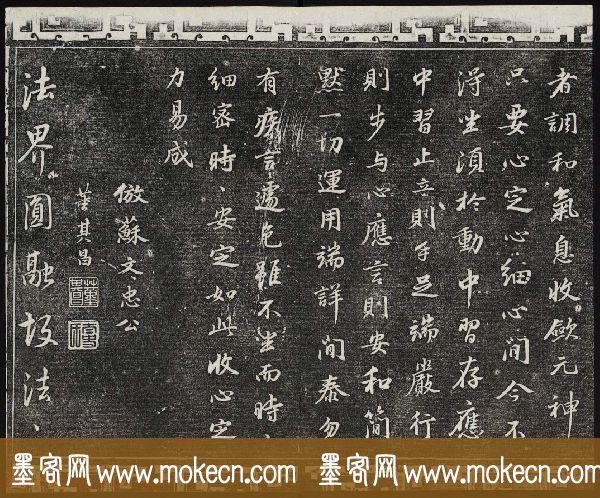 者調和氣息收斂元神
只要心定心細心閒今不
得坐須於動中習存應
中習止立則手足端嚴行
則步与心應言則安和簡
默一切運用端詳閒泰勿
有疾言遽色雖不坐而時、
細密時、安定如此收心定
力易成
倣蘇文忠公
董其昌
法界圓融故法、
墨客网 www.mokecn.com 墨客网 www.mokecn.com